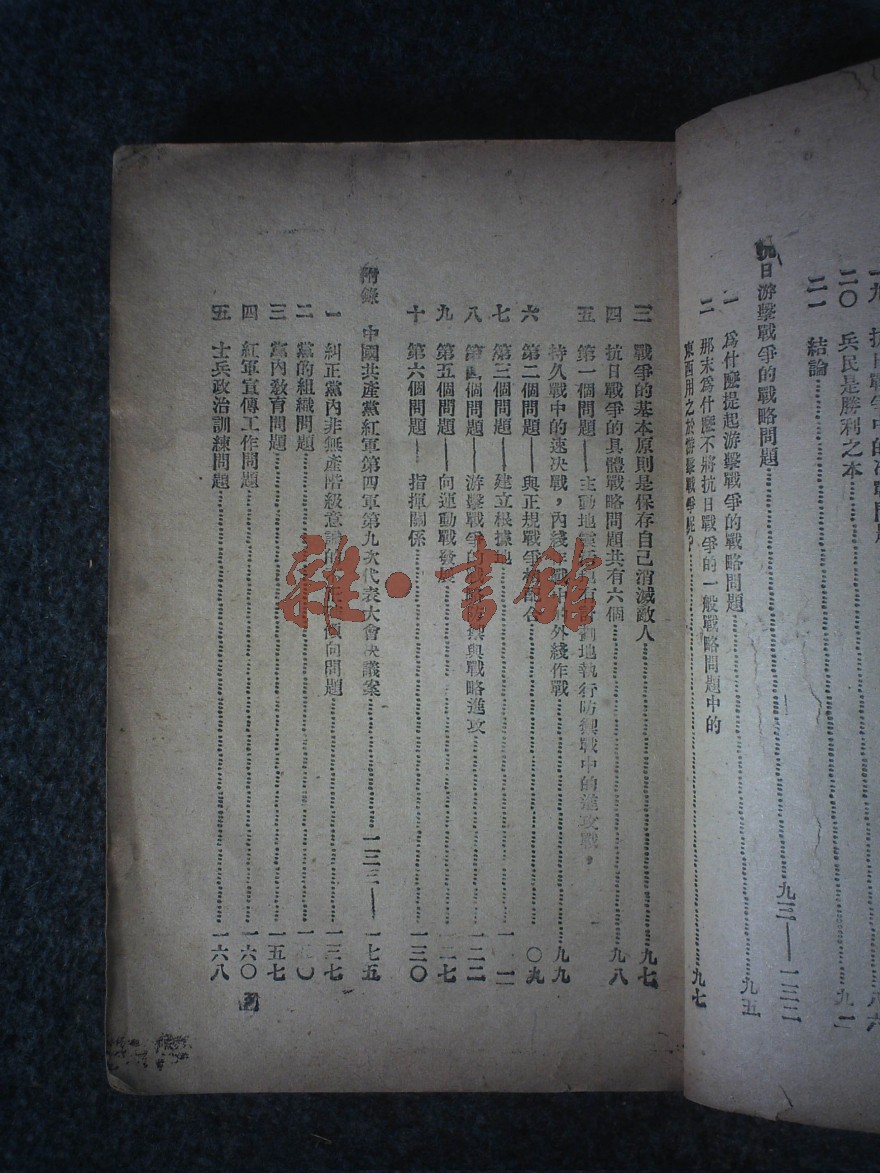 二〇 兵民是勝利之本
二一 結論……九一
抗日游擊戰爭的戰略問題……九三——一三二
一 爲什麼提起游擊戰爭的戰略問題……九五
二 那末爲什麼不將抗日戰爭的一般戰略問題中的
東西用之於游擊戰爭呢？……九七
三 戰爭的基本原則是保存自己消滅敵人……九七
四 抗日戰爭的具體戰略問題共有六個……九八
五 第一個問題——主動地靈活地有計劃地執行防禦戰中的進攻戰，
持久戰中的速決戰，內綫作戰中的外綫作戰……九九
六 第二個問題——與正規戰爭相配合……〇九
七 第三個問題——建立根據地……一一一
八 第四個問題——游擊戰爭的與戰略進攻……一二二
九 第五個問題——向運動戰發展……二七
十 第六個問題——指揮關係……一三〇
附錄 中國共產黨紅軍第四軍第九次代表大會決議案……一三三——一七五
一 糾正黨內非無產階級意識的傾向問題……一三七
二 黨的組織問題……一五〇
三 黨內敎育問題……一五七
四 紅軍宣傳工作問題……一六〇
五 士兵政治訓練問題……一六八
雜·書館